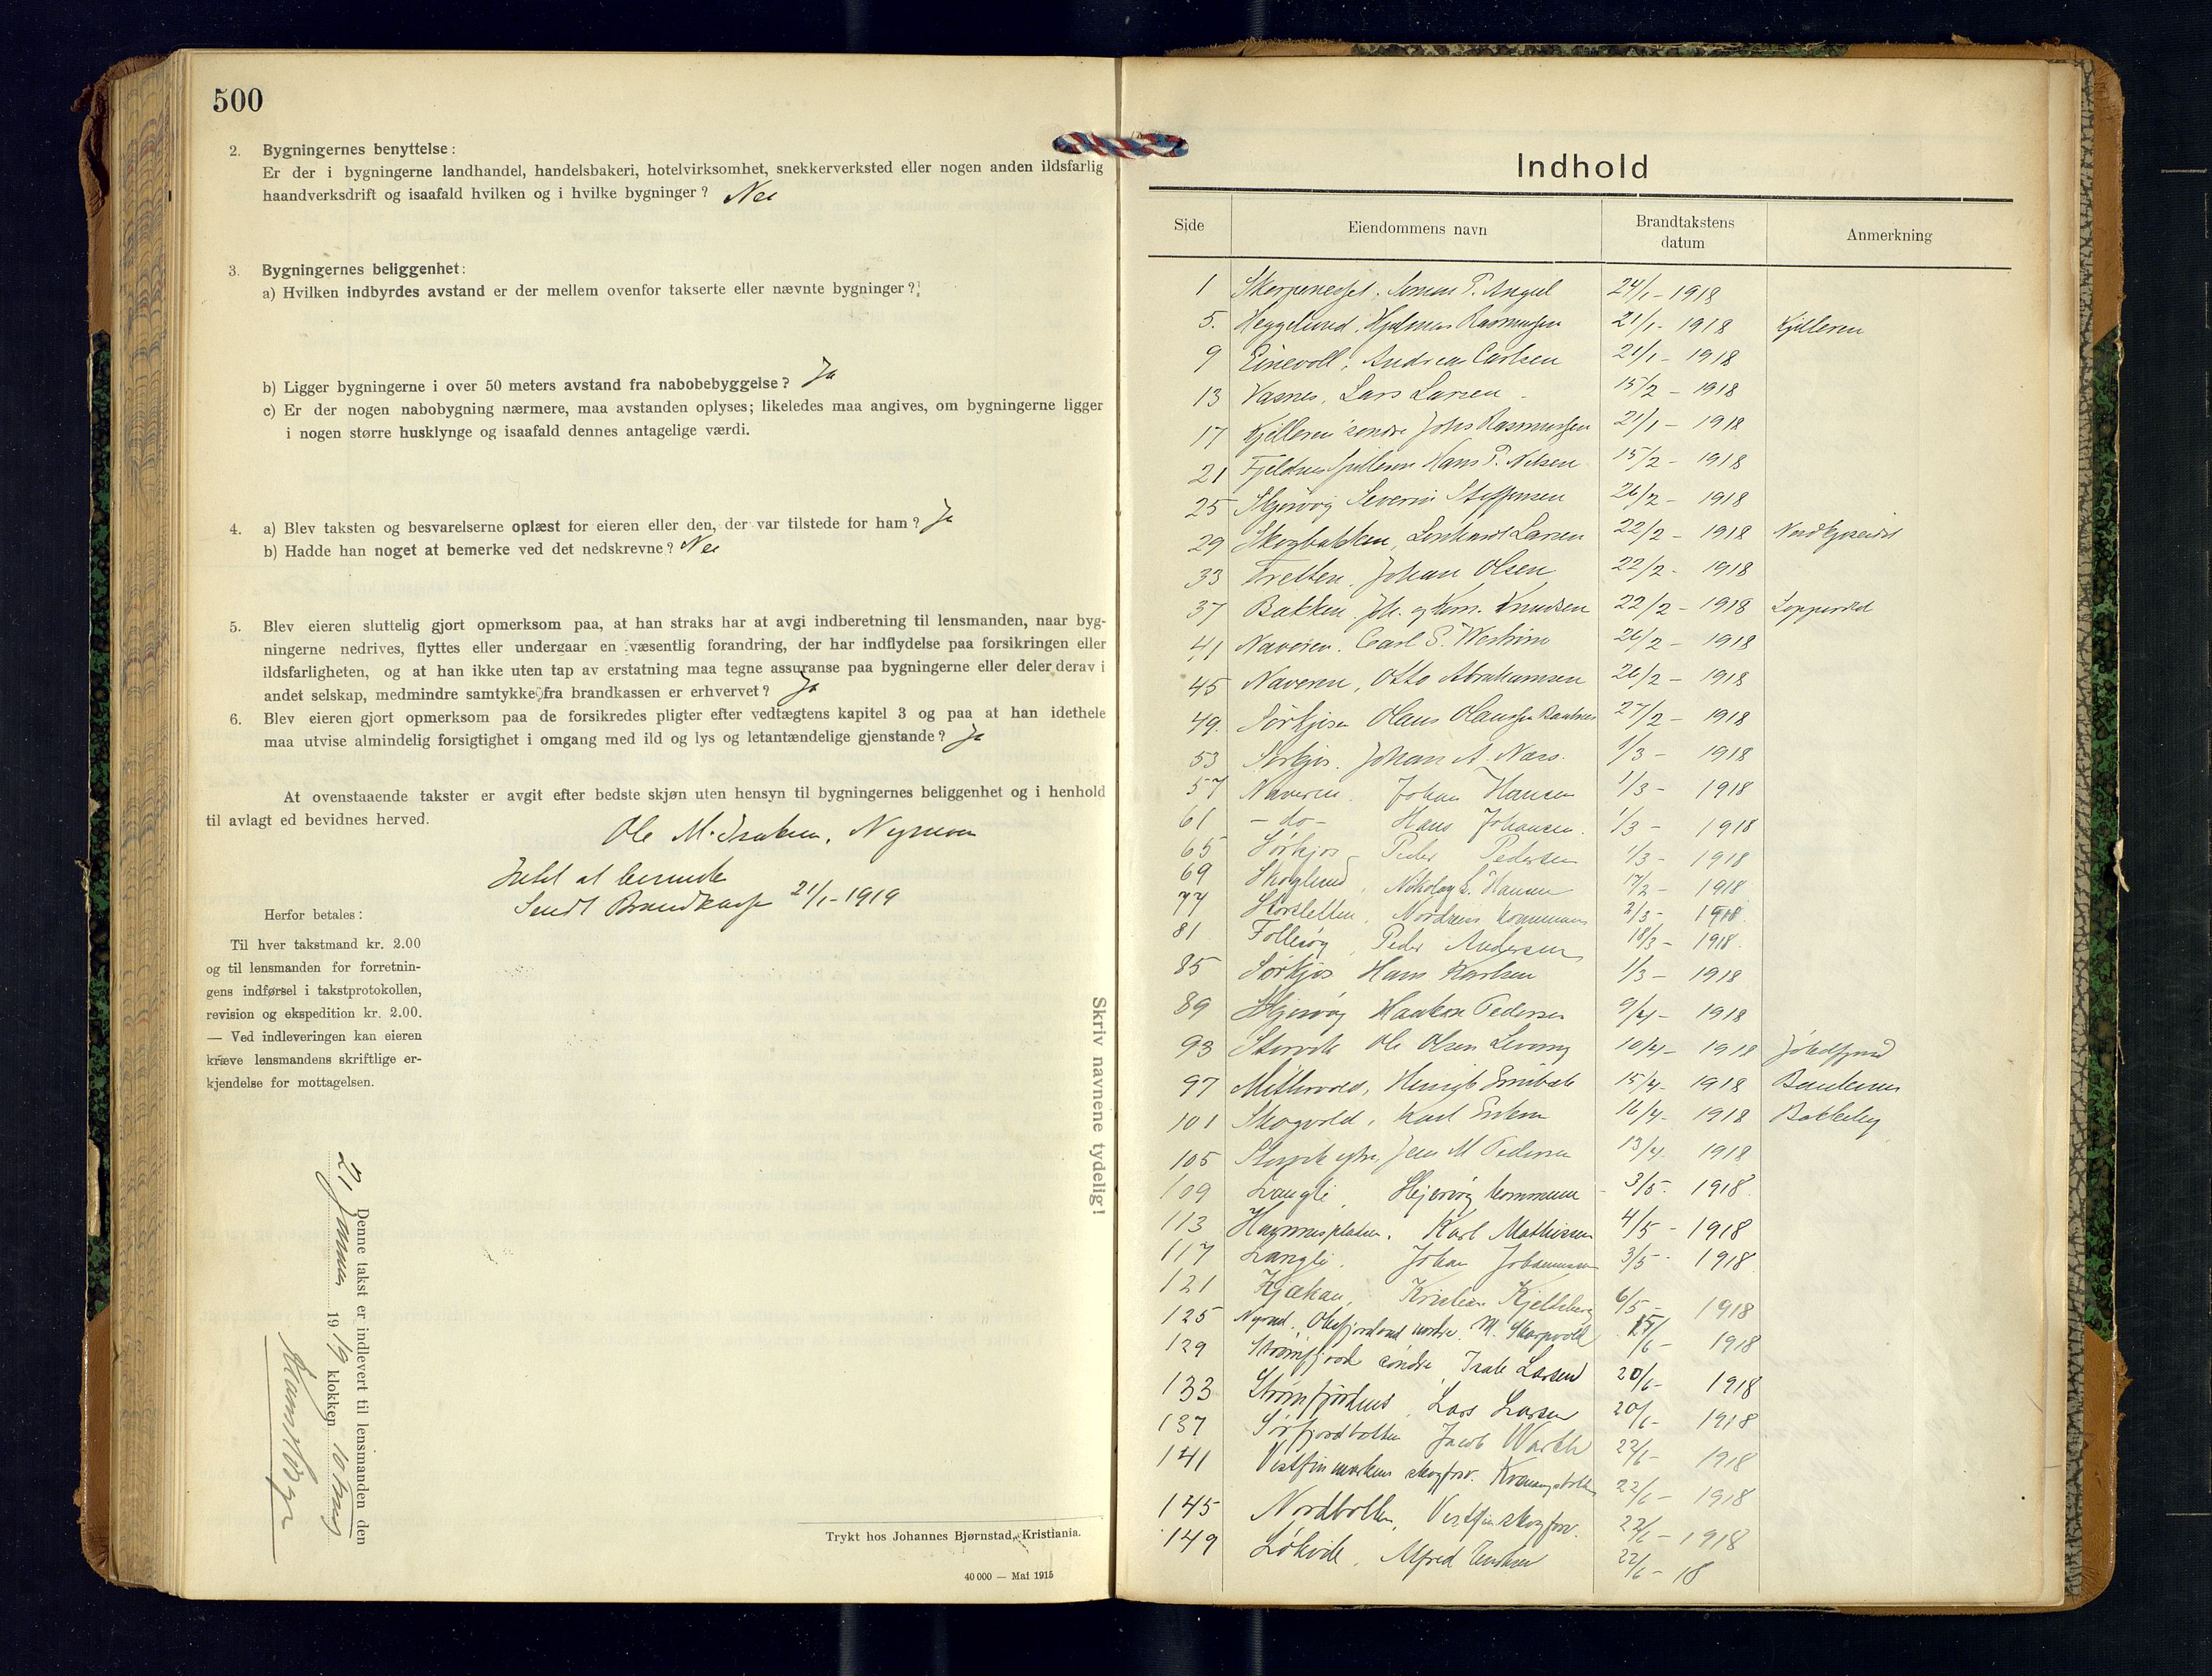 500
2. Bygningernes benyttelse:
Er der i bygningerne landhandel, handelsbakeri, hotelvirksomhet, snekkerverksted eller nogen anden ildsfarlig
haandverksdrift og isaafald hvilken og i hvilke bygninger? Nei
3. Bygningernes beliggenhet:
a) Hvilken indbyrdes avstand er der mellem ovenfor takserte eller nævnte bygninger?
b) Ligger bygningerne i over 50 meters avstand fra nabobebyggelse? Ja
c) Er der nogen nabobygning nærmere, maa avstanden oplyses; likeledes maa angives, om bygningerne ligger
i nogen større husklynge og isaafald dennes antagelige værdi.
4. a) Blev taksten og besvarelserne oplæst for eieren eller den, der var tilstede for ham? Ja
b) Hadde han noget at bemerke ved det nedskrevne? Nei
5. Blev eieren sluttelig gjort opmerksom paa, at han straks har at avgi indberetning til lensmanden, naar byg-
ningerne nedrives, flyttes eller undergaar en væsentlig forandring, der har indflydelse paa forsikringen eller
ildsfarligheten, og at han ikke uten tap av erstatning maa tegne assuranse paa bygningerne eller deler derav i
andet selskap, medmindre samtykke fra brandkassen er erhvervet? Ja
6. Blev eieren gjort opmerksom paa de forsikredes pligter efter vedtægtens kapitel 3 og paa at han idethele
maa utvise almindelig forsigtighet i omgang med ild og lys og letantændelige gjenstande? Ja
At ovenstaaende takster er avgit efter bedste skjøn uten hensyn til bygningernes beliggenhet og i henhold
til avlagt ed bevidnes herved.
Ole M. Isaksen,
Intet at bemerke
Sendt Brandkasse 21/1-1919
Herfor betales:
Til hver takstmand kr. 2.00
og til lensmanden for forretnin-
gens indførsel i takstprotokollen,
revision og ekspedition kr. 2.00.
— Ved indleveringen kan eieren
kræve lensmandens skriftlige er-
kjendelse for mottagelsen.
Denne takst er indlevert til lensmanden den
21 Januar 1919 klokken 10
Skriv navnene tydelig!
Trykt hos Johannes Bjørnstad, Kristiania.
40 000 — Mai 1915
Indhold
Side Eiendommens navn Brandtakstens datum Anmerkning
1 Skorpenesset. 24/1-1918
5. Heggelund, Hjalmar Rasmussen 21/1-1918 Kjelleren
9 Einevoll, Andrea Carlsen 21/1-1918
13 Vasnes, Lars Larsen 15/2-1918
17 Kjelleren søndre Johs Rasmussen 21/1-1918
21 Hans P. Nilsen 15/2-1918
25 Skjervøy Severin Steffensen 26/2-1918
29 Skogbakken, Lenhardt Larsen 22/2-1918
33 Tretten, Johan Olsen 22/2-1918
37 Bakken. Joh. og Knudsen 22/2-1918
41 Naveren. Carl S. 26/2-1918
45 Naveren, Otto Abrahamsen 26/2-1918
49. Sørkjosen Olaus Olaussen 27/2-1918
53 Sørkjos. Johan A. Næss. 1/3-1918
57 Naveren Johan Hansen 1/3-1918
61 - do - Hans Johansen. 1/3-1918
65 Sørkjos Peder Pedersen 1/3-1918
69 Skoglund, Nikolay L. Hansen 1918
77 Storsletten, Nordreisa kommune 2/3-1918
81 Follesøy Peder Andersen 18/3-1918.
85 Sørkjos Hans Karlsen 1/3-1918
89 Skjervøy Haakon Pedersen 9/4-1918
93 Storvik Ole Olsen 10/4-1918 Jøkelfjord
97 15/4-1918
101 Skogvold, Karl 16/4-1918 Bakkeby
105 Storvik ytre, Jens M Pedersen 13/4 1918
109 Langli, Skjervøy kommune 3/5. 1918
113 Karl Mathisen 4/5-1918
117 Langli. Johan Johannessen 3/5-1918
121 Kjækan, Kristian 6/5-1918
125 M. 1918
129 søndre Isak Larsen 20/6-1918
133 Lars Larsen 20/6-1918
137 Sørfjordbotten Jacob 22/6-1918
141 Vestfinmarkens skogforv. 22/6-1918
145 Nordbotten, Vestfin skogforv. 22/6-1918
149 Løkvik, Alfred 22/6-18